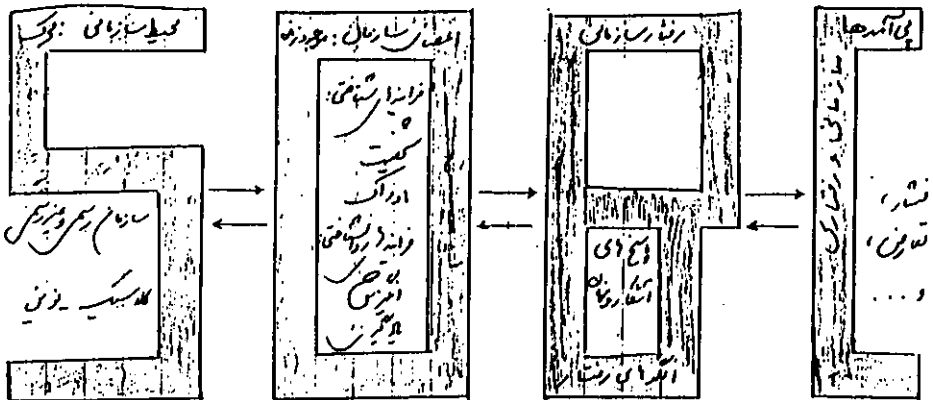 محیط سازمانی : محرک
سازمان رسمی و غیر رسمی
کلاسیک - نوین
اعضای سازمان : موجود زنده
فرایندهای شناختی:
شخصیت
ادراک
فرایندهای روانشناختی:
انگیزش
یادگیری
رفتار سازمانی
پاسخ های
آشکار و نهان
الگوهای رفتار
پی آمدها
سازمانی و رفتاری
فشار ،
تعارض ،
و ...